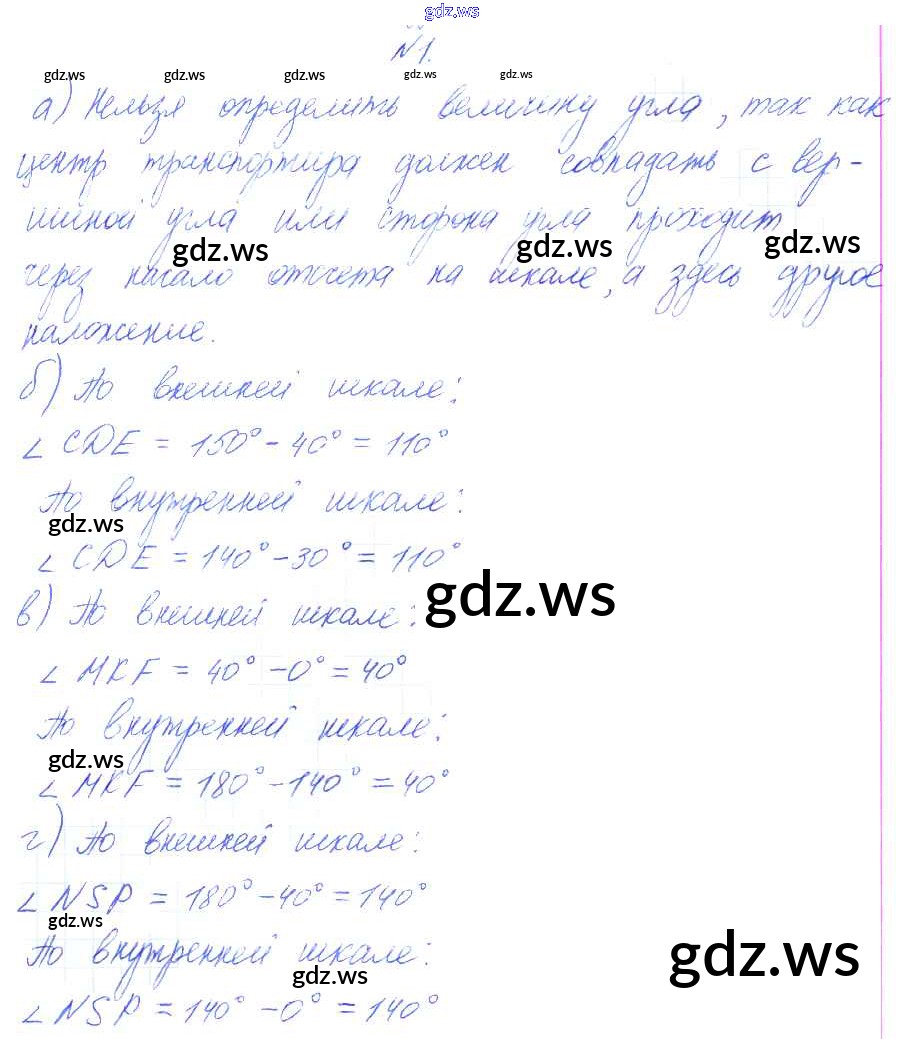 gdz.ws
№1.
gdz.ws gdz.ws gdz.ws gdz.ws gdz.ws
а) Нельзя определить величину угла, так как
центр транспортира должен совпадать с вер-
шиной угла или сторона угла проходит
gdz.ws gdz.ws gdz.ws
через начало отсчета на шкале, а здесь другое
положение.
б) По внешней шкале:
∠ CDE = 150° - 40° = 110°
По внутренней шкале:
gdz.ws
∠ CDE = 140° - 30° = 110°
gdz.ws
в) По внешней шкале:
∠ MKF = 40° - 0° = 40°
По внутренней шкале:
gdz.ws
∠ MKF = 180° - 140° = 40°
г) По внешней шкале:
∠ NSP = 180° - 40° = 140°
gdz.ws
По внутренней шкале:
gdz.ws gdz.ws
∠ NSP = 140° - 0° = 140°